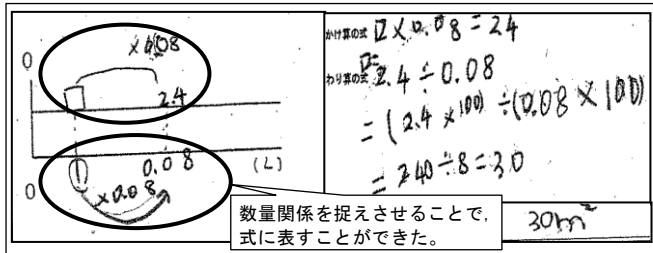 ×0.08
0
□
2.4
0
①
0.08
(L)
×0.08
かけ算の式 □×0.08=2.4
□=
わり算の式 2.4÷0.08
=(2.4×100)÷(0.08×100)
=240÷8=30
30m²
数量関係を捉えさせることで,
式に表すことができた。